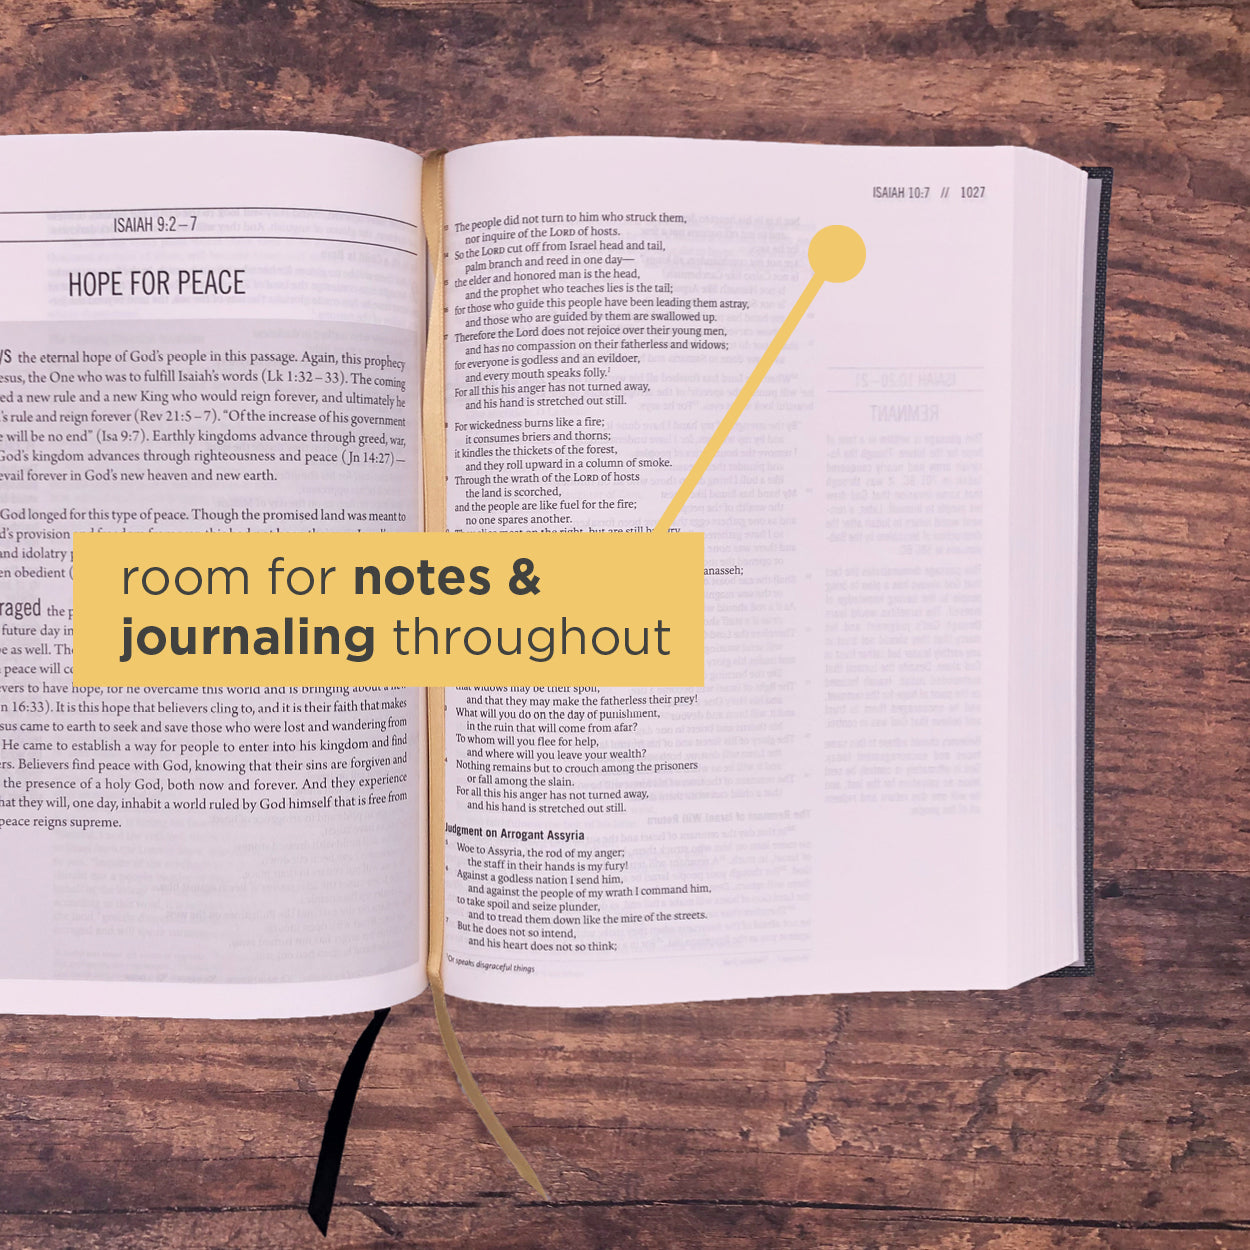 ISAIAH 9:2–7
HOPE FOR PEACE
the eternal hope of God's people in this passage. Again, this prophecy
esus, the One who was to fulfill Isaiah's words (Lk 1:32–33). The coming
ed a new rule and a new King who would reign forever, and ultimately he
's rule and reign forever (Rev 21:5–7). "Of the increase of his government
e will be no end" (Isa 9:7). Earthly kingdoms advance through greed, war,
God's kingdom advances through righteousness and peace (Jn 14:27)—
evail forever in God's new heaven and new earth.
God longed for this type of peace. Though the promised land was meant to
d's provision
and idolatry
en obedient (
raged the p
future day in
e as well. The
peace will co
vers to have hope, for he overcame this world and is bringing about a new
n 16:33). It is this hope that believers cling to, and it is their faith that makes
sus came to earth to seek and save those who were lost and wandering from
He came to establish a way for people to enter into his kingdom and find
ers. Believers find peace with God, knowing that their sins are forgiven and
the presence of a holy God, both now and forever. And they experience
hat they will, one day, inhabit a world ruled by God himself that is free from
peace reigns supreme.
room for notes &
journaling throughout
ISAIAH 10:7 // 1027
The people did not turn to him who struck them,
nor inquire of the LORD of hosts.
So the LORD cut off from Israel head and tail,
palm branch and reed in one day—
the elder and honored man is the head,
and the prophet who teaches lies is the tail;
for those who guide this people have been leading them astray,
and those who are guided by them are swallowed up.
Therefore the Lord does not rejoice over their young men,
and has no compassion on their fatherless and widows;
for everyone is godless and an evildoer,
and every mouth speaks folly.
For all this his anger has not turned away,
and his hand is stretched out still.
For wickedness burns like a fire;
it consumes briers and thorns;
it kindles the thickets of the forest,
and they roll upward in a column of smoke.
Through the wrath of the LORD of hosts
the land is scorched,
and the people are like fuel for the fire;
no one spares another.
anasseh;
that widows may be their spoil,
and that they may make the fatherless their prey!
What will you do on the day of punishment,
in the ruin that will come from afar?
To whom will you flee for help,
and where will you leave your wealth?
Nothing remains but to crouch among the prisoners
or fall among the slain.
For all this his anger has not turned away,
and his hand is stretched out still.
Judgment on Arrogant Assyria
Woe to Assyria, the rod of my anger;
the staff in their hands is my fury!
Against a godless nation I send him,
and against the people of my wrath I command him,
to take spoil and seize plunder,
and to tread them down like the mire of the streets.
But he does not so intend,
and his heart does not so think;
Or speaks disgraceful things